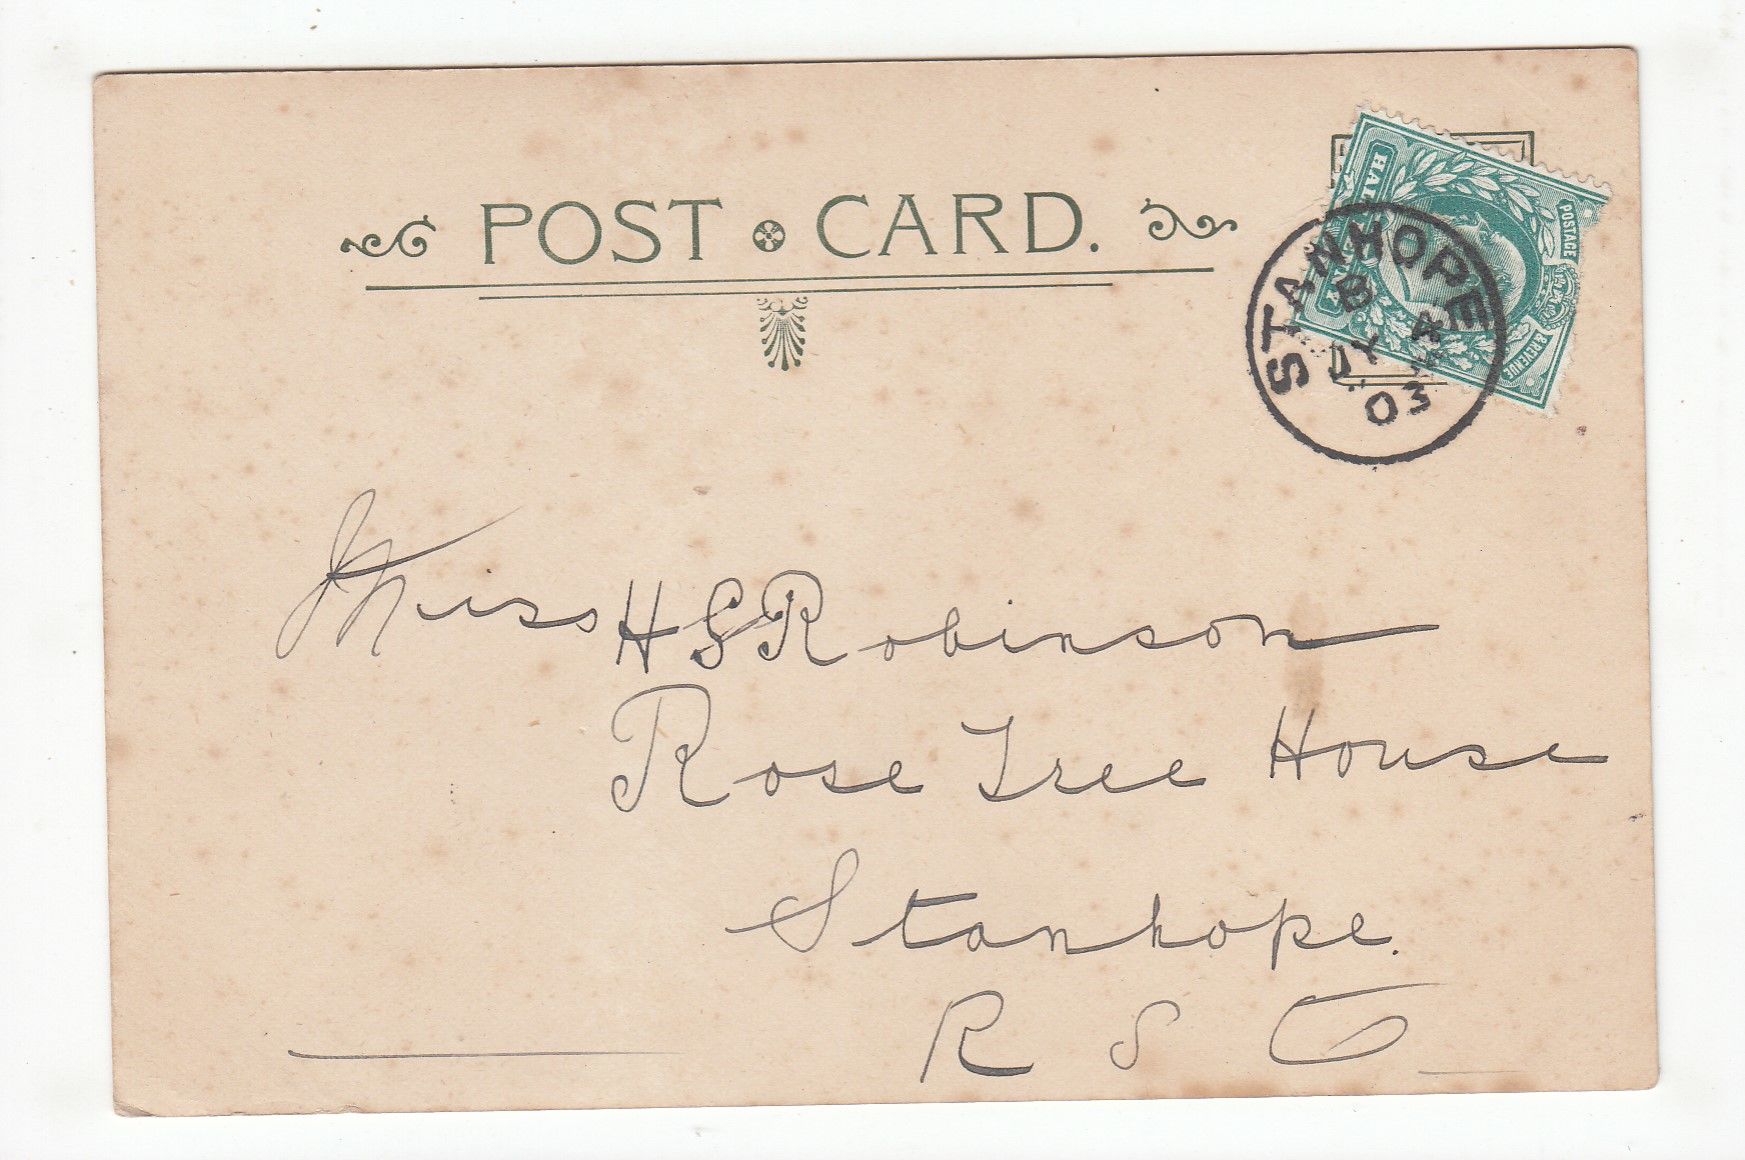 POST CARD.
HALF
POSTAGE
& REVENUE
STANHOPE
B
JY 4
03
Miss H S Robinson
Rose Tree House
Stanhope.
R S O